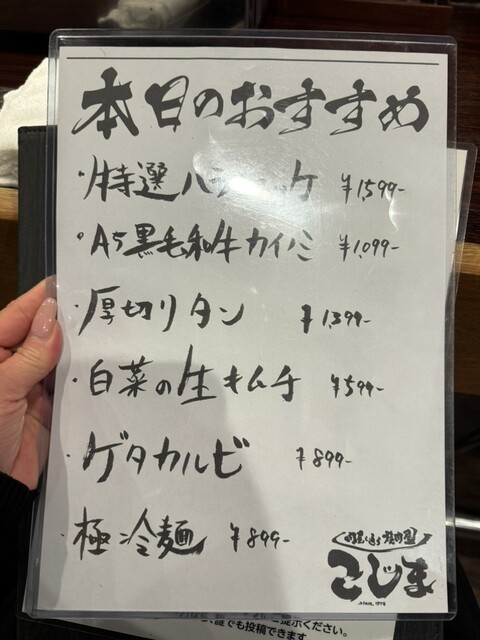 本日のおすすめ
・特選ハラミ ¥1,599-
・A5黒毛和牛カイノミ ¥1,099-
・厚切りタン ¥1,399-
・白菜の生キムチ ¥599-
・ゲタカルビ ¥899-
・極冷麺 ¥899-
焼肉屋
こじま
ご提示ください。
誰でも投稿できます